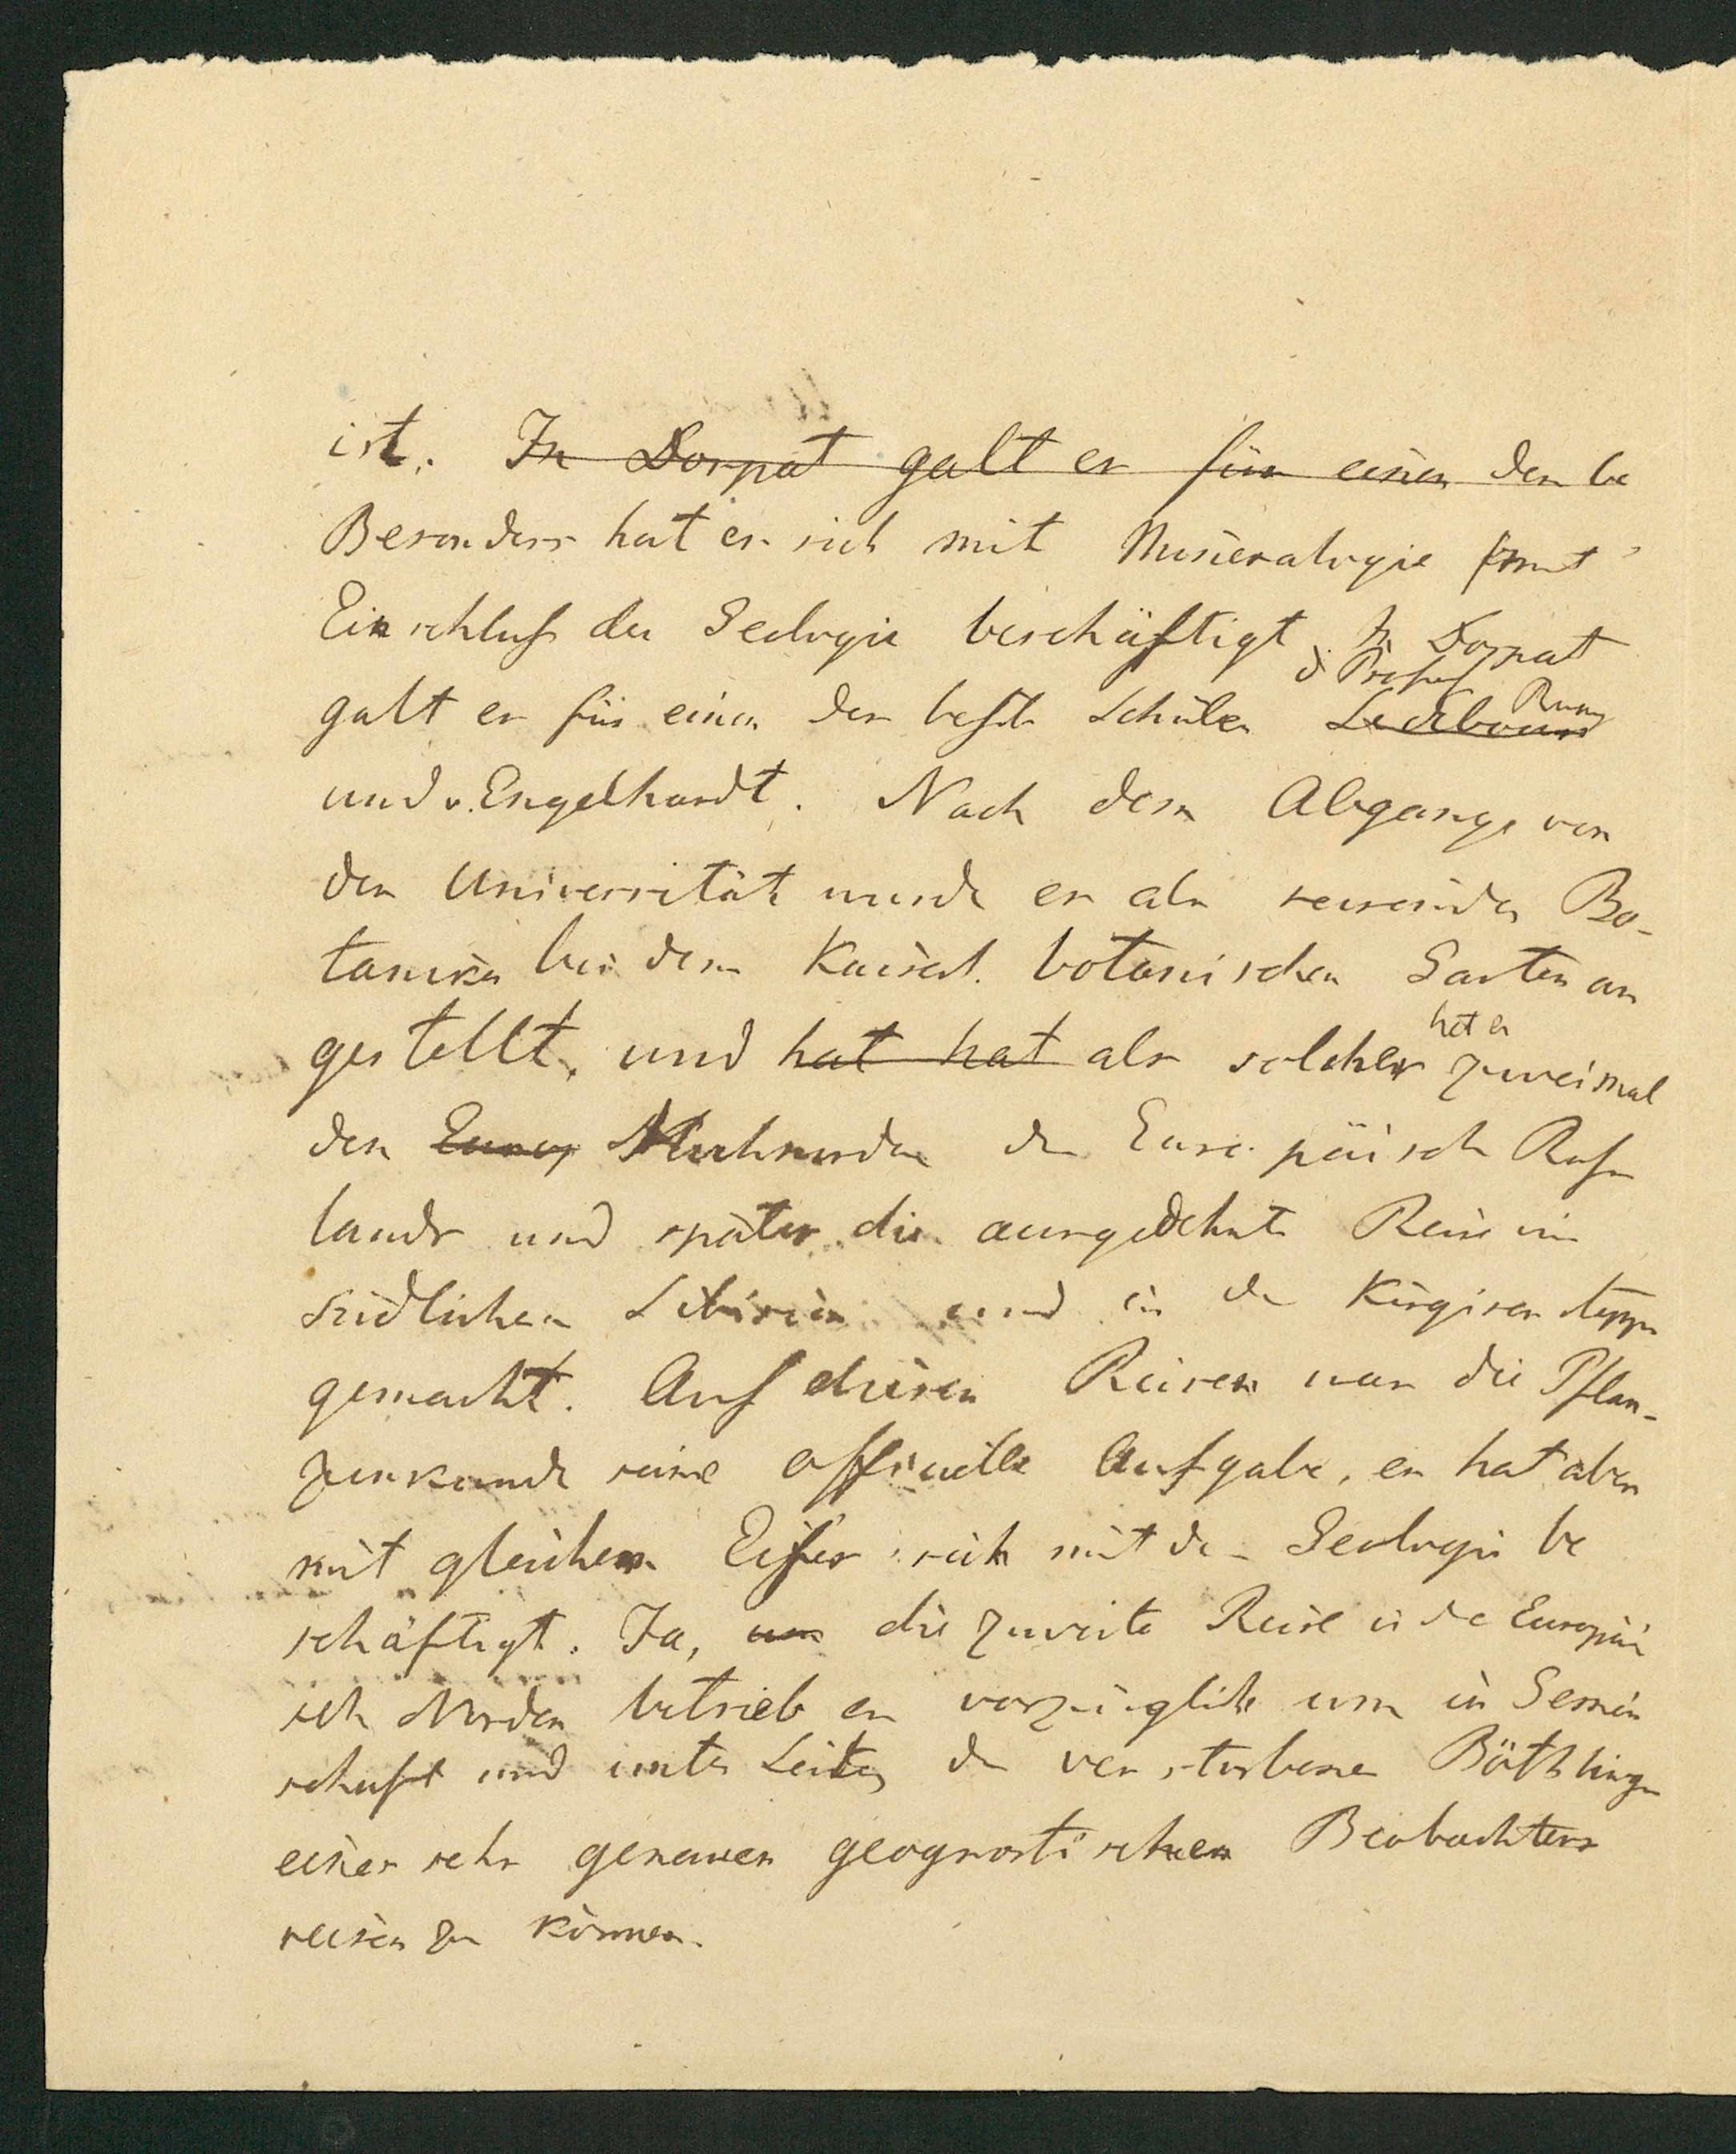 ist. In Dorpat galt er für einen der be
Besonders hat er sich mit Mineralogie mit
Einschluß der Geologie beschäftigt. In Dorpat
galt er für einen der besten Schüler d. Profess Ledebours Bunge
und v. Engelhardt. Nach dem Abgange von
der Universität wurde er als reisender Bo-
taniker bei dem Kaiserl. botanischen Garten an
gestellt, und hat hat als solcher hat er zweimal
den Europ Hochnorden des Europäischen Ruß
lands und später die ausgedehnte Reise im
südlichen Sibirien und in der Kirgisensteppe
gemacht. Auf diesen Reisen war die Pflan-
zenkunde seine officielle Aufgabe, er hat aber
mit gleichem Eifer sich mit der Geologie be
schäftigt. Ja, um die zweite Reise in de Europäi
sch Norden betrieb er vorzüglich um in Gemein
schaft und unter Leitung des verstorbenen Böthlingk
eines sehr genauen geognostischen Beobachters
reisen zu können.